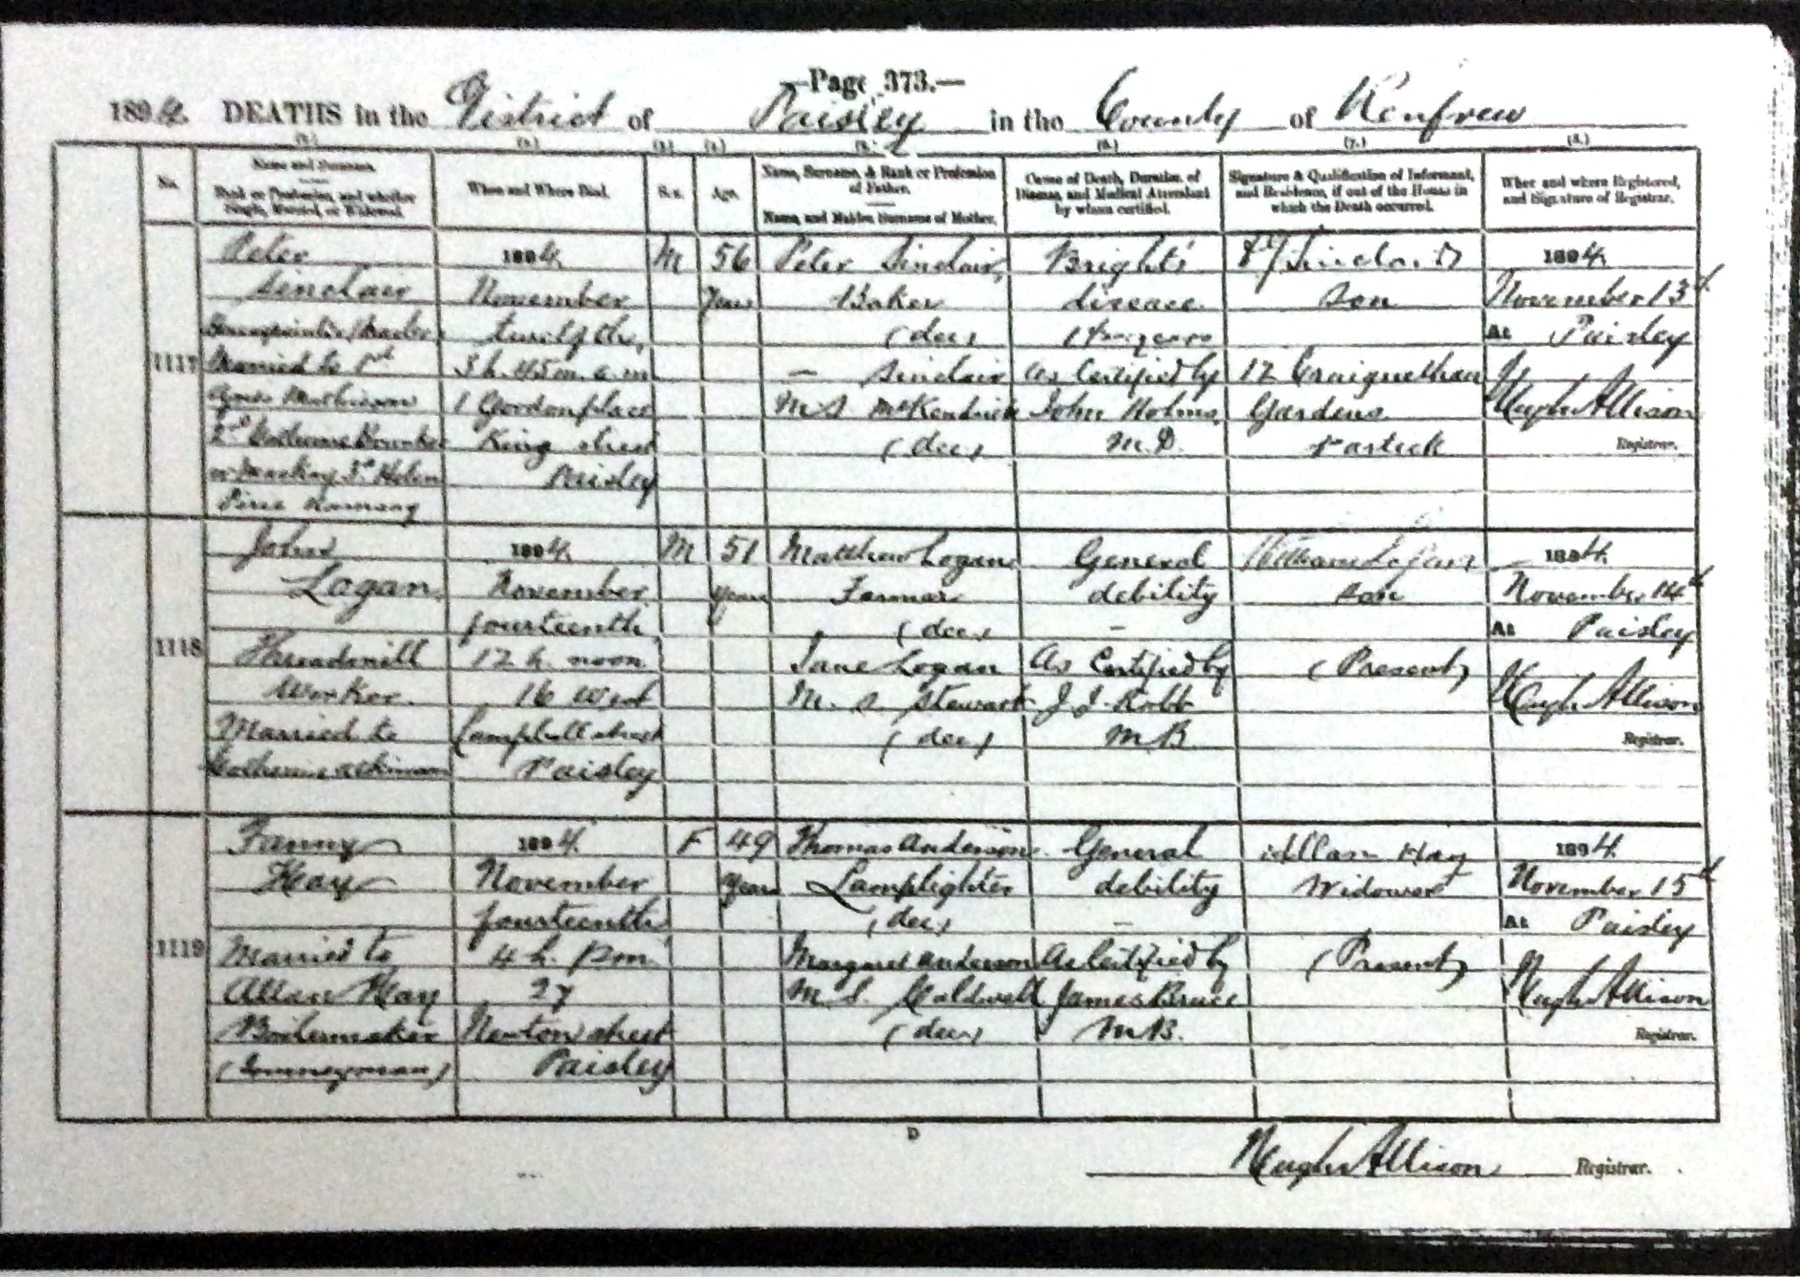 —Page 373.—
1894. DEATHS in the District of Paisley in the County of Renfrew
(1.) (2.) (3.) (4.) (5.) (6.) (7.) (8.)
No.
Name and Surname.
Rank or Profession, and whether
Single, Married, or Widowed.
When and Where Died.
Sex.
Age.
Name, Surname, & Rank or Profession
of Father.
Name, and Maiden Surname of Mother.
Cause of Death, Duration of
Disease, and Medical Attendant
by whom certified.
Signature & Qualification of Informant,
and Residence, if out of the House in
which the Death occurred.
When and where Registered,
and Signature of Registrar.
1117
Peter
Sinclair
Master
Married to 1st
Agnes Mathieson
2nd Catherine
or Mackay 3rd Helen
Pirie Ramsay
1894.
November
twelfth,
3 h. 45 m. a.m
1 Gordon place
King street
Paisley
M
56
Years
Peter Sinclair,
Baker
(dec)
— Sinclair
M.S McKendrick
(dec)
Bright's
disease
years
As Certified by
John Holms,
M.D.
Sinclair
Son
12 Craignethan
Gardens
Partick
1894.
November 13th
At Paisley
Hugh Allison
Registrar.
1118
John
Logan
Threadmill
Worker.
Married to
Catherine
1894.
November
fourteenth,
12 h. noon
16 West
Campbell street
Paisley
M
51
years
Matthew Logan
Farmer
(dec)
Jane Logan
M. S. Stewart
(dec)
General
debility
—
As Certified by
J. J. Robb
M.B.
William Logan
son
(Present)
1894.
November 14th
At Paisley
Hugh Allison
Registrar.
1119
Fanny
Hay
Married to
Allan Hay
Boilermaker
(Journeyman)
1894.
November
fourteenth,
4 h. p.m.
27
Newton street
Paisley
F
49
years
Thomas Anderson
Lamplighter
(dec)
Margaret Anderson
M. S. Caldwell
(dec)
General
debility
—
As Certified by
James Bruce
M.B.
Allan Hay
Widower
(Present)
1894.
November 15th
At Paisley
Hugh Allison
Registrar.
D
Hugh Allison Registrar.